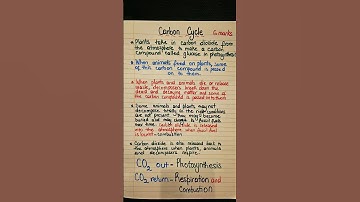 Carbon Cycle 6 marks
Plants take in carbon dioxide from
the atmosphere to make a carbon
compound called glucose in photosynthesis
When animals feed on plants, some of
this carbon compound is passed
on to them.
When plants and animals die or release
waste, decomposers break down the
dead and decaying matter and some of
the carbon compound is passed into them
Some animals and plants may not
decompose totally as the right conditions
are not present. They may become
buried and may change to fossil fuels
over time. Carbon dioxide is released
into the atmosphere when fossil fuel
is burnt - combustion
Carbon dioxide is also released back to
the atmosphere when plants, animals
and decomposers respire.
CO2 out - Photosynthesis
CO2 return - Respiration and
Combustion